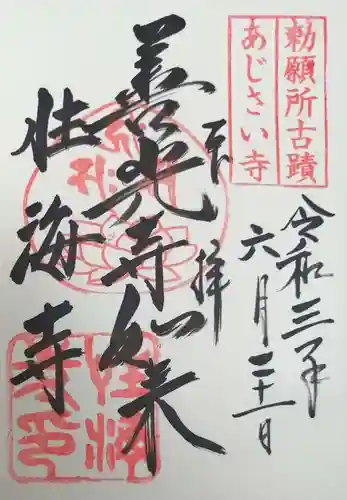 勅願所古蹟
あじさい寺
奉拝
令和三年
六月二十一日
善光寺如来
性海寺